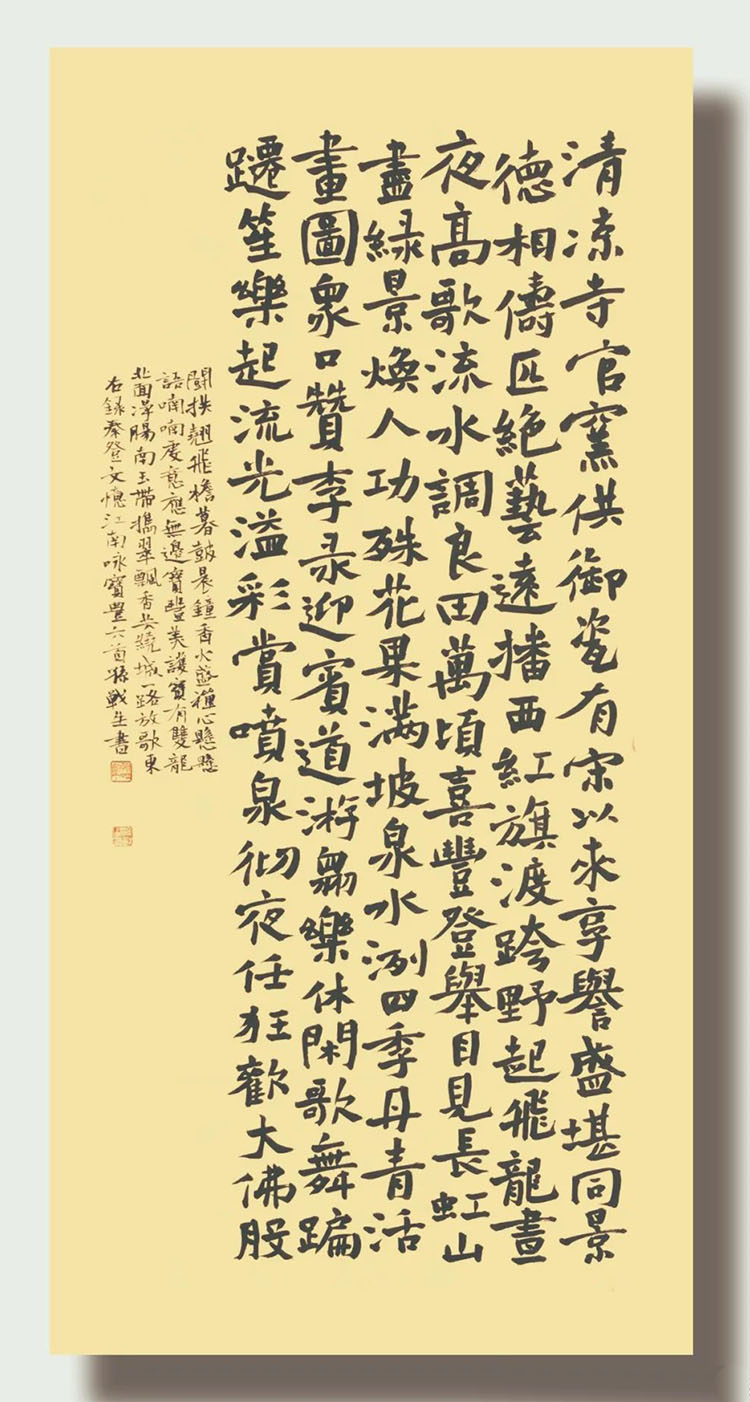 清凉寺官窯供御瓷有宋以來享譽盛堪同景
德相儔匹絕藝遠播西紅旗渡跨野起飛龍晝
夜高歌流水調良田萬頃喜豐登舉目見長虹山
盡緑景煥人功殊花果滿坡泉水冽四季丹青活
畫圖衆口贊李录迎賓道游樂休閑歌舞蹁
躚笙樂起流光溢彩賞噴泉彻夜任狂歡大佛
鬪拱翹飛檐暮鼓晨鐘香火盛禪心懸懸
語喃喃虔意應無邊寶豐美護寶有雙龍
北面淨腸南玉帶攜翠飄香共繞城一路放歌東
右録秦登文憶江南咏寶豐六首孫戰生書